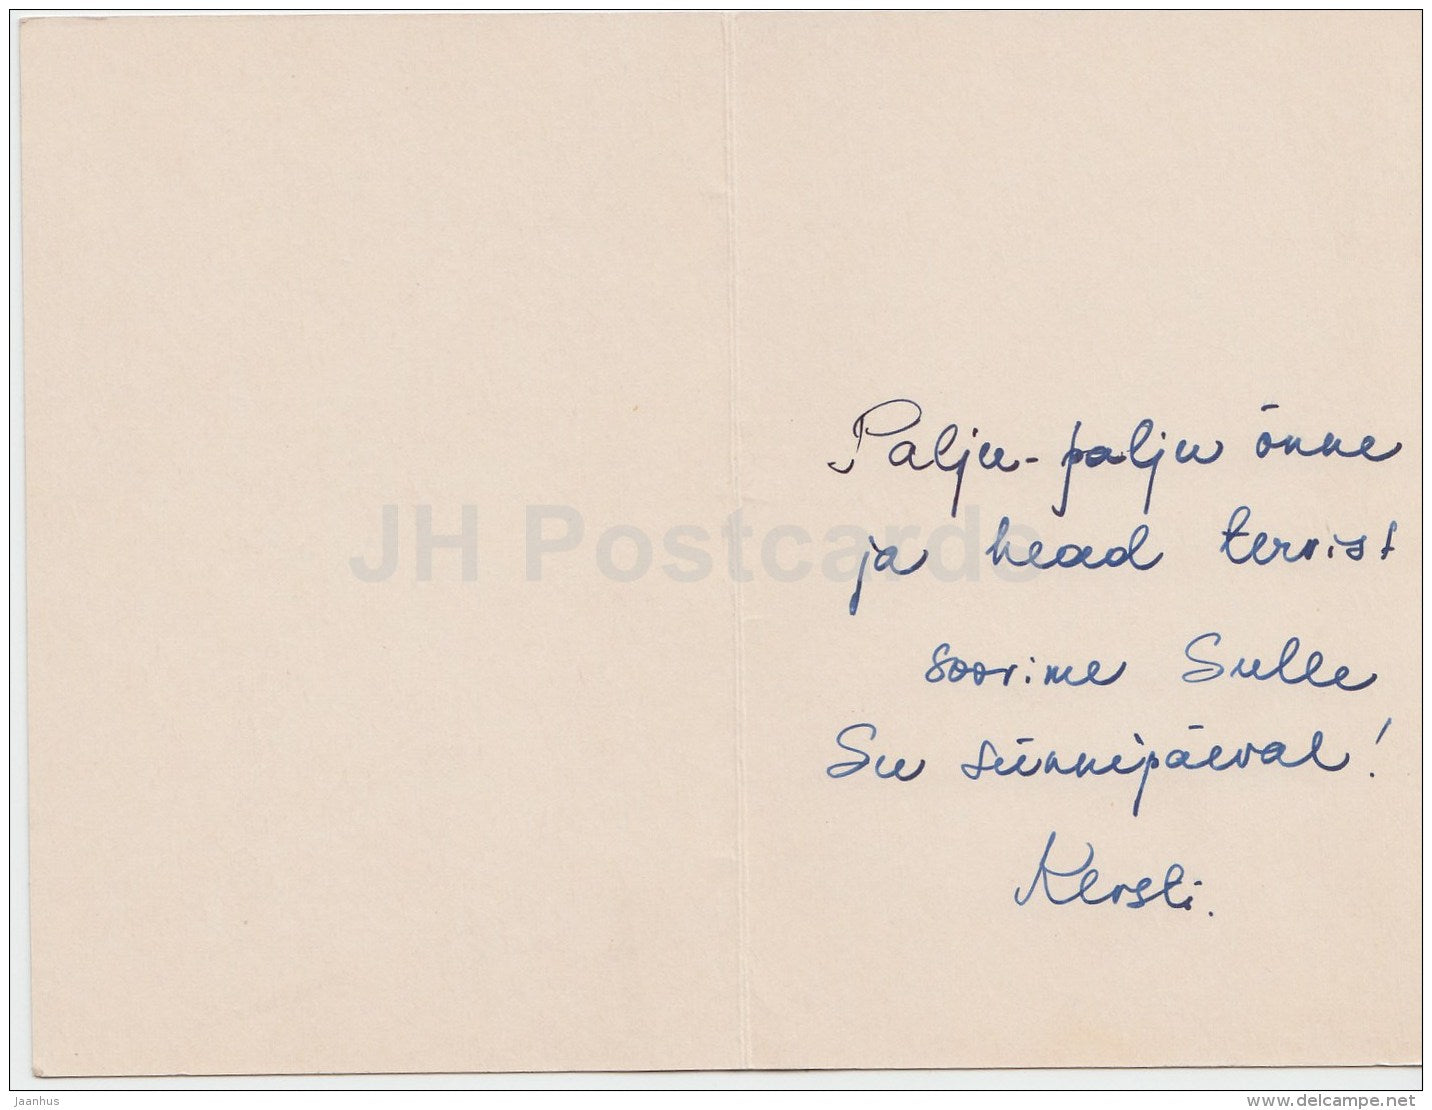 Palju-palju õnne
ja head tervist
soovime Sulle
Su sünnipäeval!
Kersti.
JH Postcards
Jaanhus
www.delcampe.net